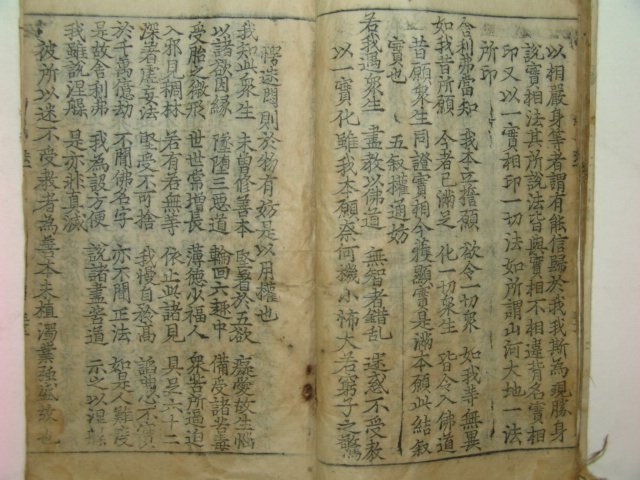 以相嚴身等者謂有能信歸於我我斯為現勝身
說實相法其所說法皆與實相不相違背名實相
印又以一實相印一切法如所謂山河大地一法
所印
舍利弗當知 我本立誓願 欲令一切眾 如我等無異
如我昔所願 今者已滿足 化一切眾生 皆令入佛道
昔願眾生同證實相今獲顯實是滿本願此結叙
實也 五叙權通妨
若我遇眾生 盡教以佛道 無智者錯乱 迷惑不受教
以一實化雖我本願奈何機小怖大若窮子之驚
愕迷悶則於物有妨是以用權也
我知此眾生 未曾修善本 堅著於五欲 癡愛故生惱
以諸欲因緣 墜墮三惡道 輪回六趣中 備受諸苦毒
受胎之微形 世世常增長 薄德少福人 眾苦所逼迫
入邪見稠林 若有若無等 依止此諸見 具足六十二
深著虛妄法 堅受不可捨 我慢自矜高 諂曲心不實
於千萬億劫 不聞佛名字 亦不聞正法 如是人難度
是故舍利弗 我為設方便 說諸盡苦道 示之以涅槃
我雖說涅槃 是亦非真滅
彼所以迷不受教者為善本未種濁業強盛故也